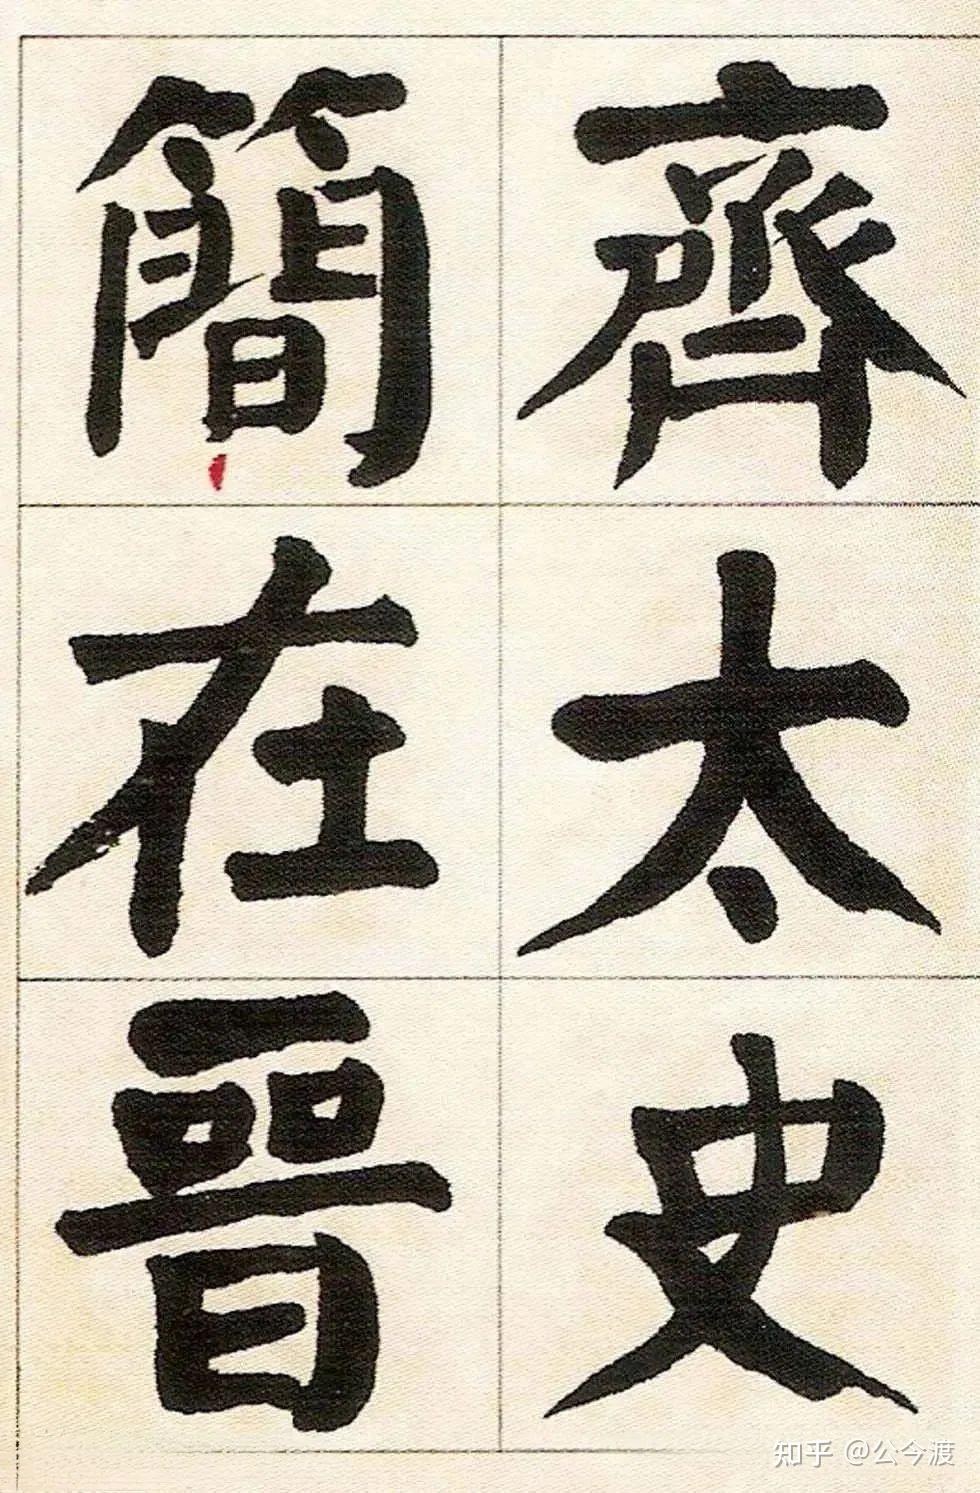 齊太史
簡在晉
知乎 @公今渡